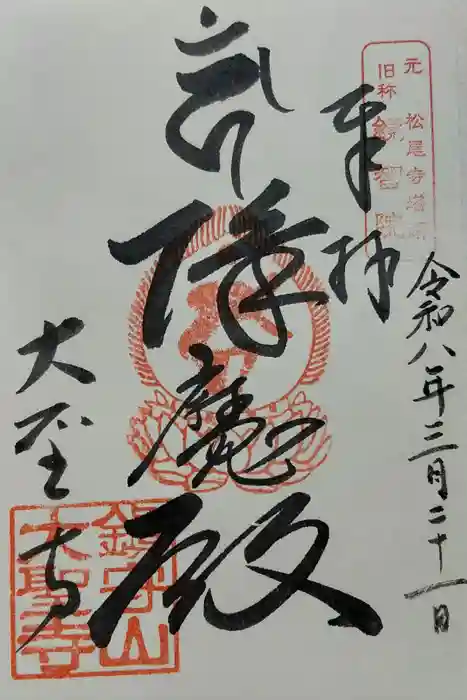 元 松尾寺塔頭
旧称 鏡智院
奉拝
令和八年三月二十一日
降魔殿
大聖寺
鎮守山
大聖寺